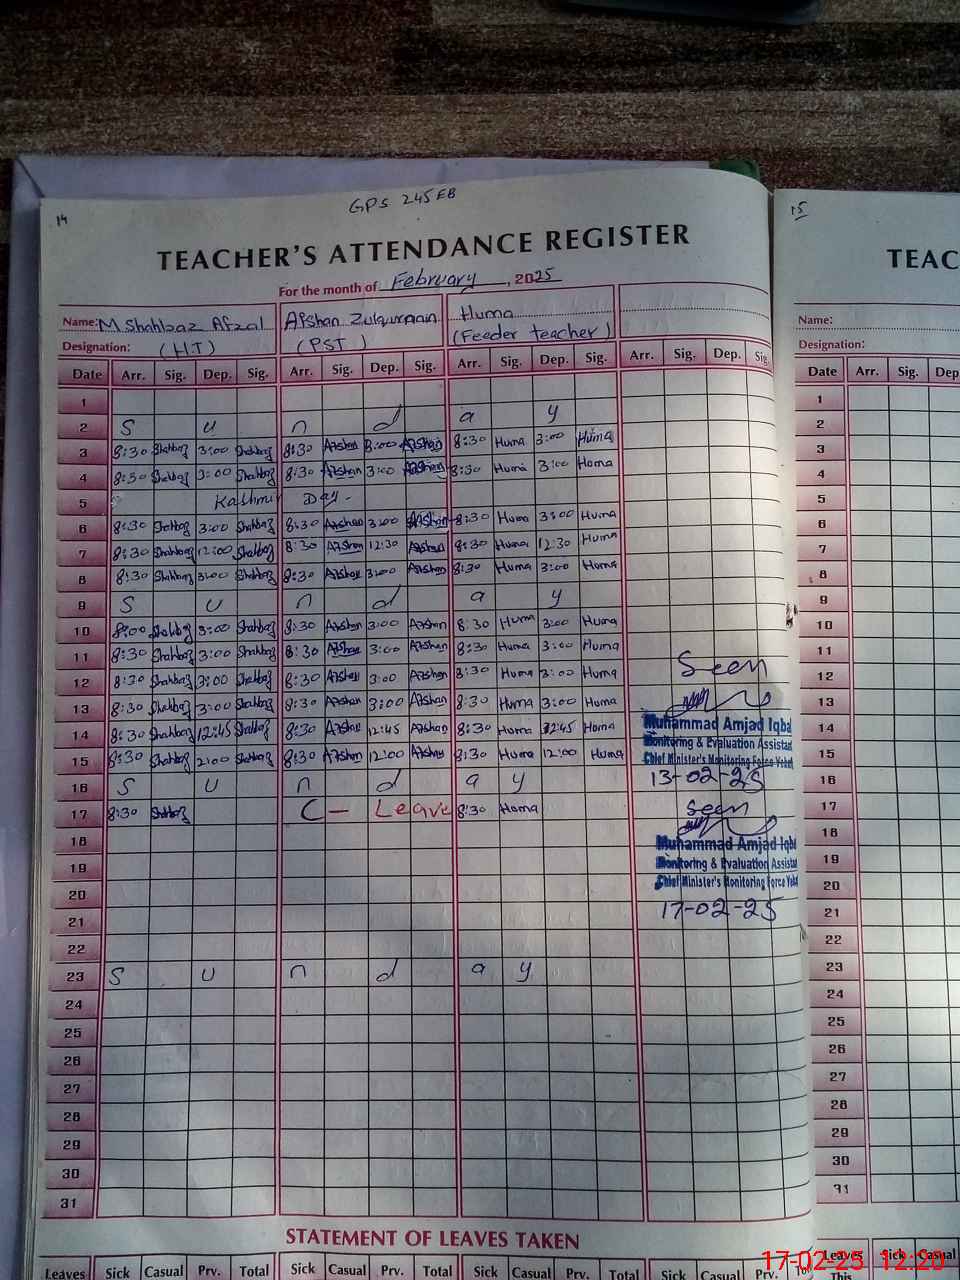 14
GPS 245EB
15
TEACHER'S ATTENDANCE REGISTER
TEAC
For the month of February, 2025
Name: M Shahbaz Afzal Afshan Zulqurnain Huma
Name:
Designation: (H.T) (PST) (Feeder teacher)
Designation:
Date Arr. Sig. Dep. Sig. Arr. Sig. Dep. Sig. Arr. Sig. Dep. Sig. Arr. Sig. Dep. Sig.
Date Arr. Sig. Dep
1
2 S u n d a y
3 8:30 Shahbaz 3:00 Shahbaz 8:30 Afshan 3:00 Afshan 8:30 Huma 3:00 Huma
4 8:30 Shahbaz 3:00 Shahbaz 8:30 Afshan 3:00 Afshan 8:30 Huma 3:00 Huma
5 Kashmir Day -
6 8:30 Shahbaz 3:00 Shahbaz 8:30 Afshan 3:00 Afshan 8:30 Huma 3:00 Huma
7 8:30 Shahbaz 12:00 Shahbaz 8:30 Afshan 12:30 Afshan 8:30 Huma 12:30 Huma
8 8:30 Shahbaz 3:00 Shahbaz 8:30 Afshan 3:00 Afshan 8:30 Huma 3:00 Huma
9 S u n d a y
10 8:00 Shahbaz 3:00 Shahbaz 8:30 Afshan 3:00 Afshan 8:30 Huma 3:00 Huma
11 8:30 Shahbaz 3:00 Shahbaz 8:30 Afshan 3:00 Afshan 8:30 Huma 3:00 Huma
12 8:30 Shahbaz 3:00 Shahbaz 8:30 Afshan 3:00 Afshan 8:30 Huma 3:00 Huma
Seen
13 8:30 Shahbaz 3:00 Shahbaz 8:30 Afshan 3:00 Afshan 8:30 Huma 3:00 Huma
14 8:30 Shahbaz 12:45 Shahbaz 8:30 Afshan 12:45 Afshan 8:30 Huma 12:45 Huma
Muhammad Amjad Iqbal
Monitoring & Evaluation Assistant
15 8:30 Shahbaz 2:00 Shahbaz 8:30 Afshan 12:00 Afshan 8:30 Huma 12:00 Huma
Chief Minister's Monitoring Force
13-02-25
16 S u n d a y
17 8:30 Shahbaz C - Leave 8:30 Huma
Seen
18
Muhammad Amjad Iqba
19
Monitoring & Evaluation Assistant
Chief Minister's Monitoring Force
20
17-02-25
21
22
23 S u n d a y
24
25
26
27
28
29
30
31
1
2
3
4
5
6
7
8
9
10
11
12
13
14
15
16
17
18
19
20
21
22
23
24
25
26
27
28
29
30
31
STATEMENT OF LEAVES TAKEN
Leaves Sick Casual Prv. Total Sick Casual Prv. Total Sick Casual Prv. Total Sick Casual Prv. To
Leaves Sick Casual
This
17-02-25 12:20